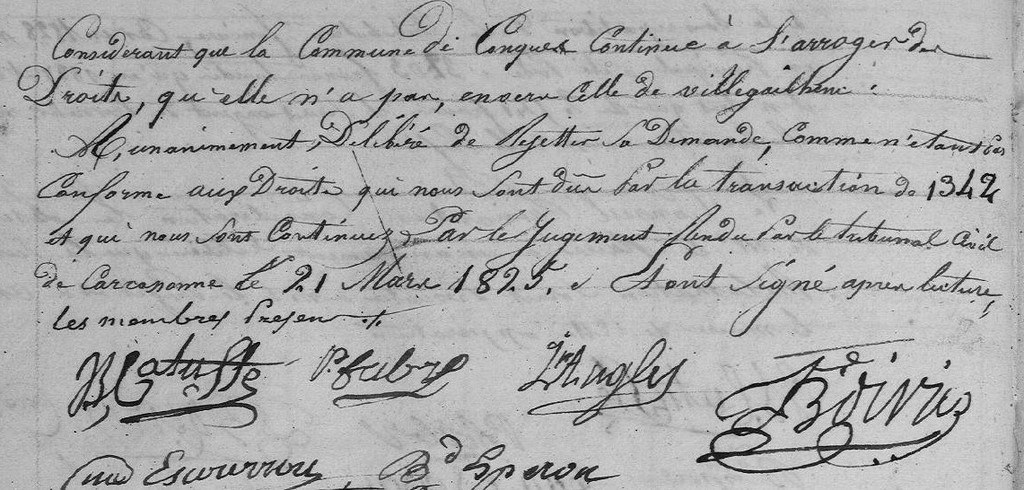 Considerant que la Commune de Conques Continue à S'arroger des
Droits, qu'elle n'a pas, envers Celle de villegailhenc :
A, unanimement, Délibéré de Rejetter Sa Demande, Comme n'étant pas
Conforme aux Droits qui nous Sont dûs Par la transaction de 1342
et qui nous Sont Continués Par le Jugement Rendu Par le tribunal Civil
de Carcassonne Le 21 Mars 1825. & Sont Signé apres lecture,
les membres Presens
Batusse P. fabre Anglès Bd Boivin
Escourrou Bd Speron